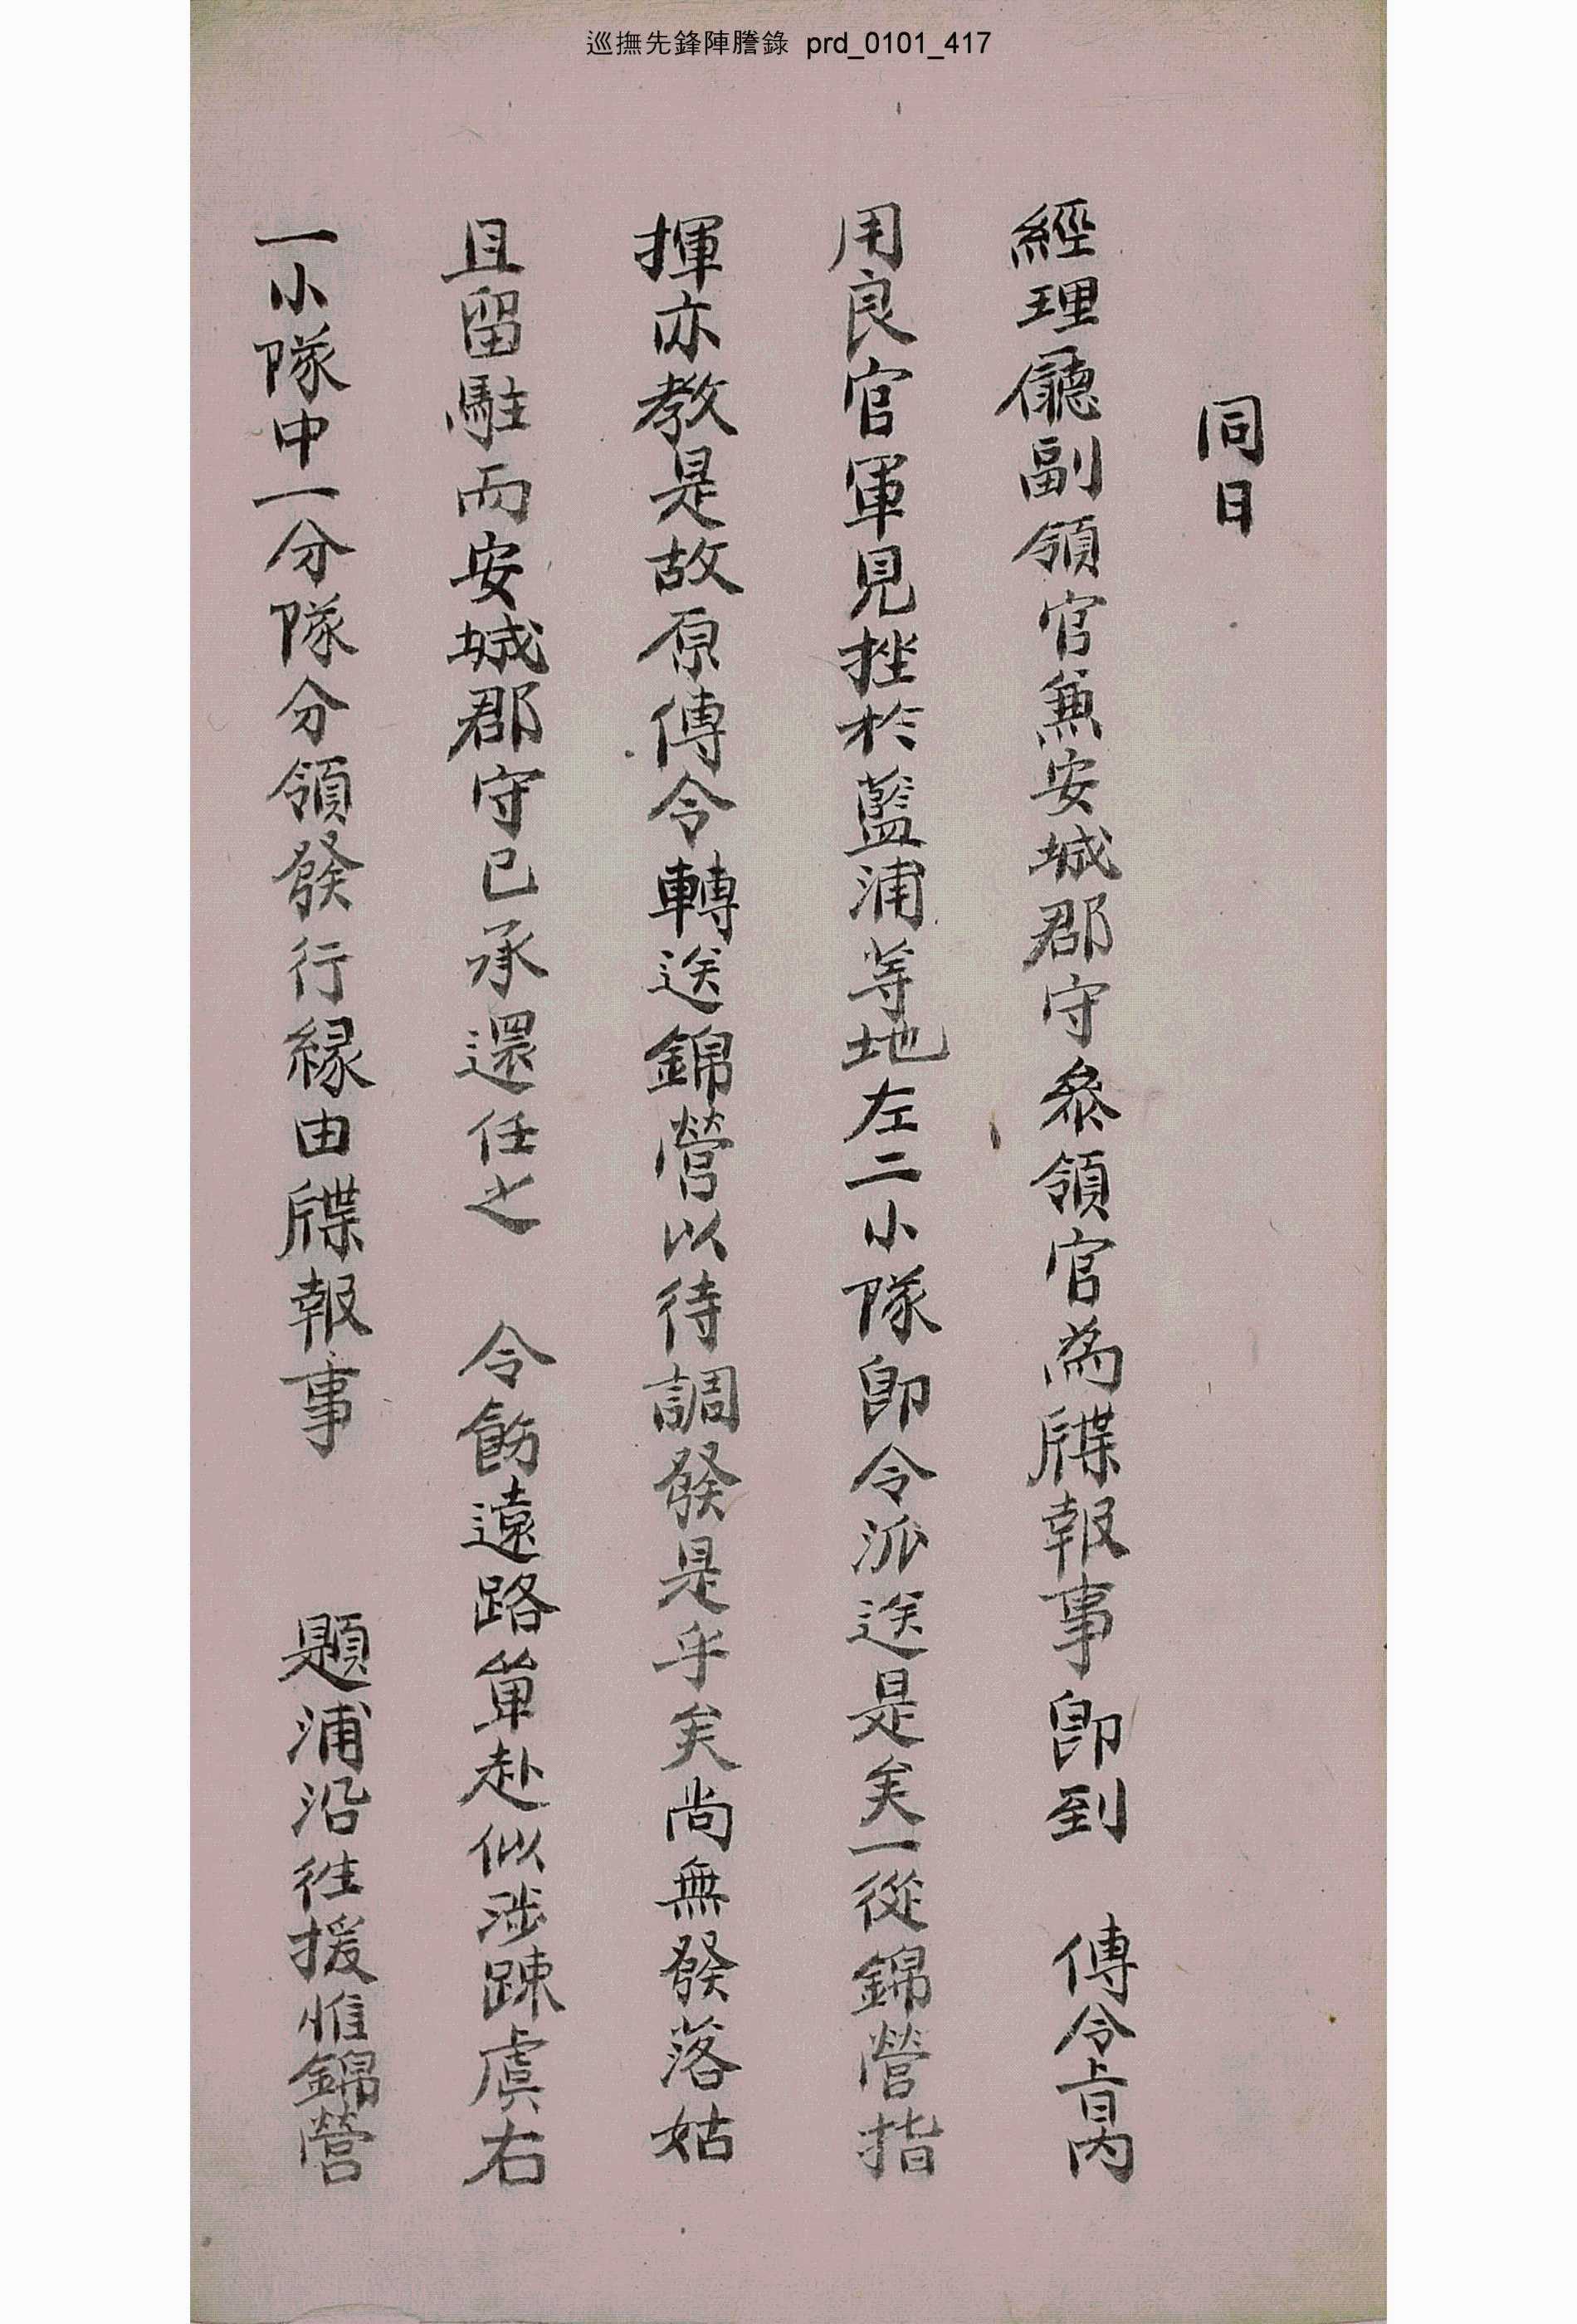 巡撫先鋒陣謄錄 prd_0101_417
同日
經理廳副領官兼安城郡守參領官爲牒報事卽到 傳令旨內
用良官軍見挫於藍浦等地左二小隊卽令派送是矣一從錦營指
揮亦敎是故原傳令轉送錦營以待調發是乎矣尙無發落姑
且留駐而安城郡守已承還任之 令飭遠路單赴似涉踈虞右
一小隊中一分隊分領發行緣由牒報事 題浦沿往援惟錦營